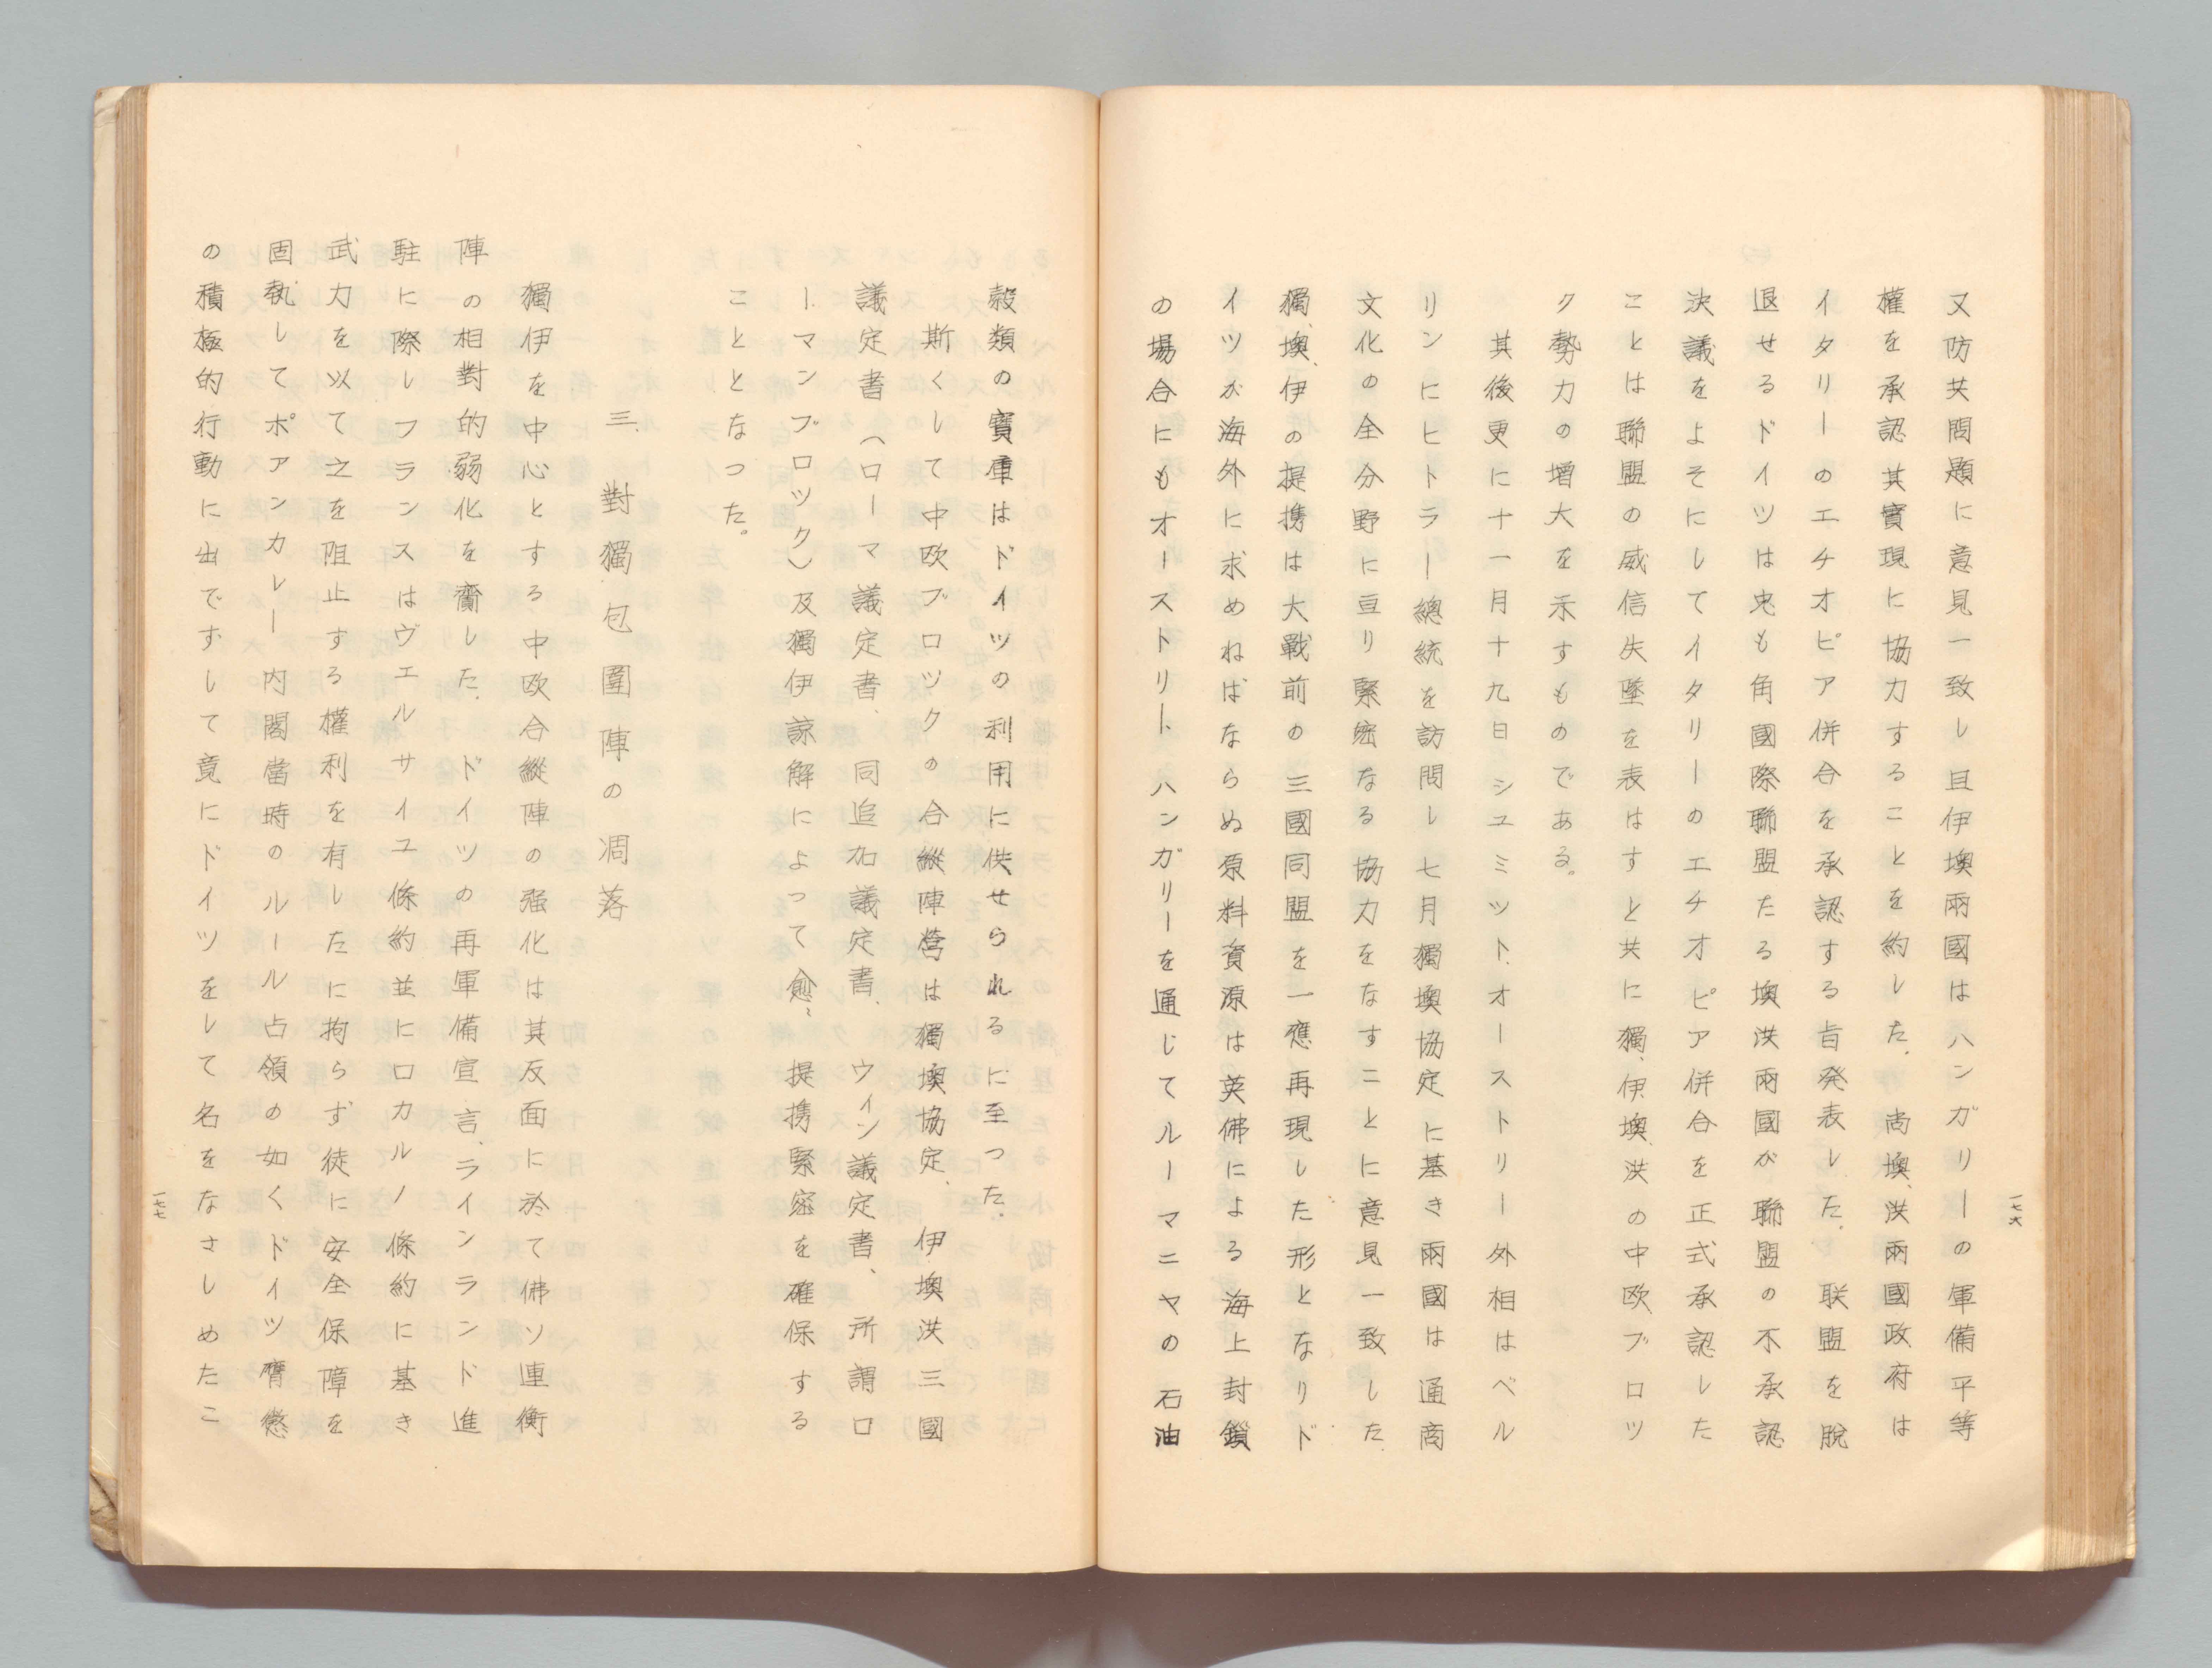 又防共問題に意見一致し且伊墺兩國はハンガリーの軍備平等
權を承認其實現に協力することを約した、尚墺、洪兩國政府は
イタリーのエチオピア併合を承認する旨発表した、联盟を脫
退せるドイツは兎も角國際聯盟たる墺洪兩國が聯盟の不承認
決議をよそにしてイタリーのエチオピア併合を正式承認した
ことは聯盟の威信失墜を表はすと共に獨、伊、墺、洪の中欧ブロツ
ク勢力の增大を示すものである。
其後更に十一月十九日シユミツト、オーストリー外相はベル
リンにヒトラー總統を訪問し七月獨墺協定に基き兩國は通商
文化の全分野に亘り緊密なる協力をなすことに意見一致した、
獨、墺、伊の提携は大戰前の三國同盟を一應再現した形となりド
イツが海外に求めねばならぬ原料資源は英佛による海上封鎖
の場合にもオーストリート ハンガリーを通じてルーマニヤの石油
一七六
穀類の寶庫はドイツの利用に供せられるに至つた、
斯くして中欧ブロツクの合縱陣營は獨墺協定、伊墺洪三國
議定書（ローマ議定書、同追加議定書、ウイン議定書、所謂ロ
ーマンブロツク）及獨伊諒解によつて愈々提携緊密を確保する
こととなつた。
三、對獨包圍陣の凋落
獨伊を中心とする中欧合縱陣の强化は其反面に於て佛ソ連衡
陣の相對的弱化を齎した、ドイツの再軍備宣言、ラインランド進
駐に際しフランスはヴエルサイユ條約並にロカルノ條約に基き
武力を以て之を阻止する權利を有したに拘らず徒に安全保障を
固執してポアンカレー 內閣當時のルール占領の如くドイツ膺懲
の積極的行動に出でずして竟にドイツをして名をなさしめたこ
一七七